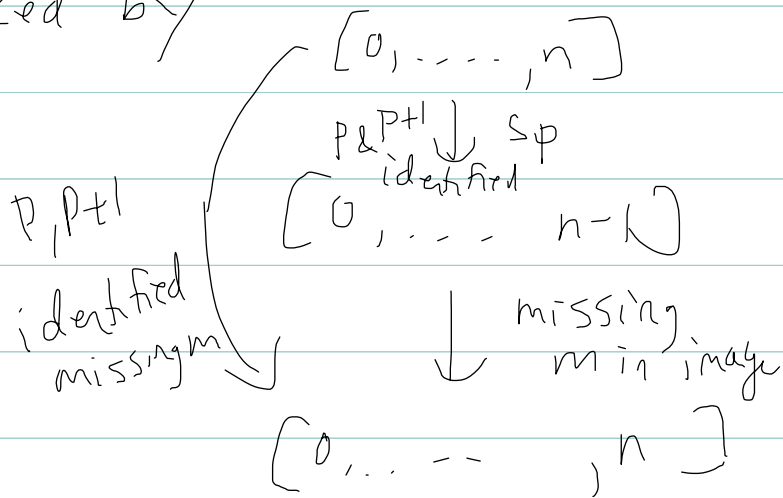 by
[0, ...., n]
p & p+1 ↓ Sp
identified
[0, ... n-1]
p, p+1
identified
missing m
↓ missing
m in image
[0, .. -- , n]